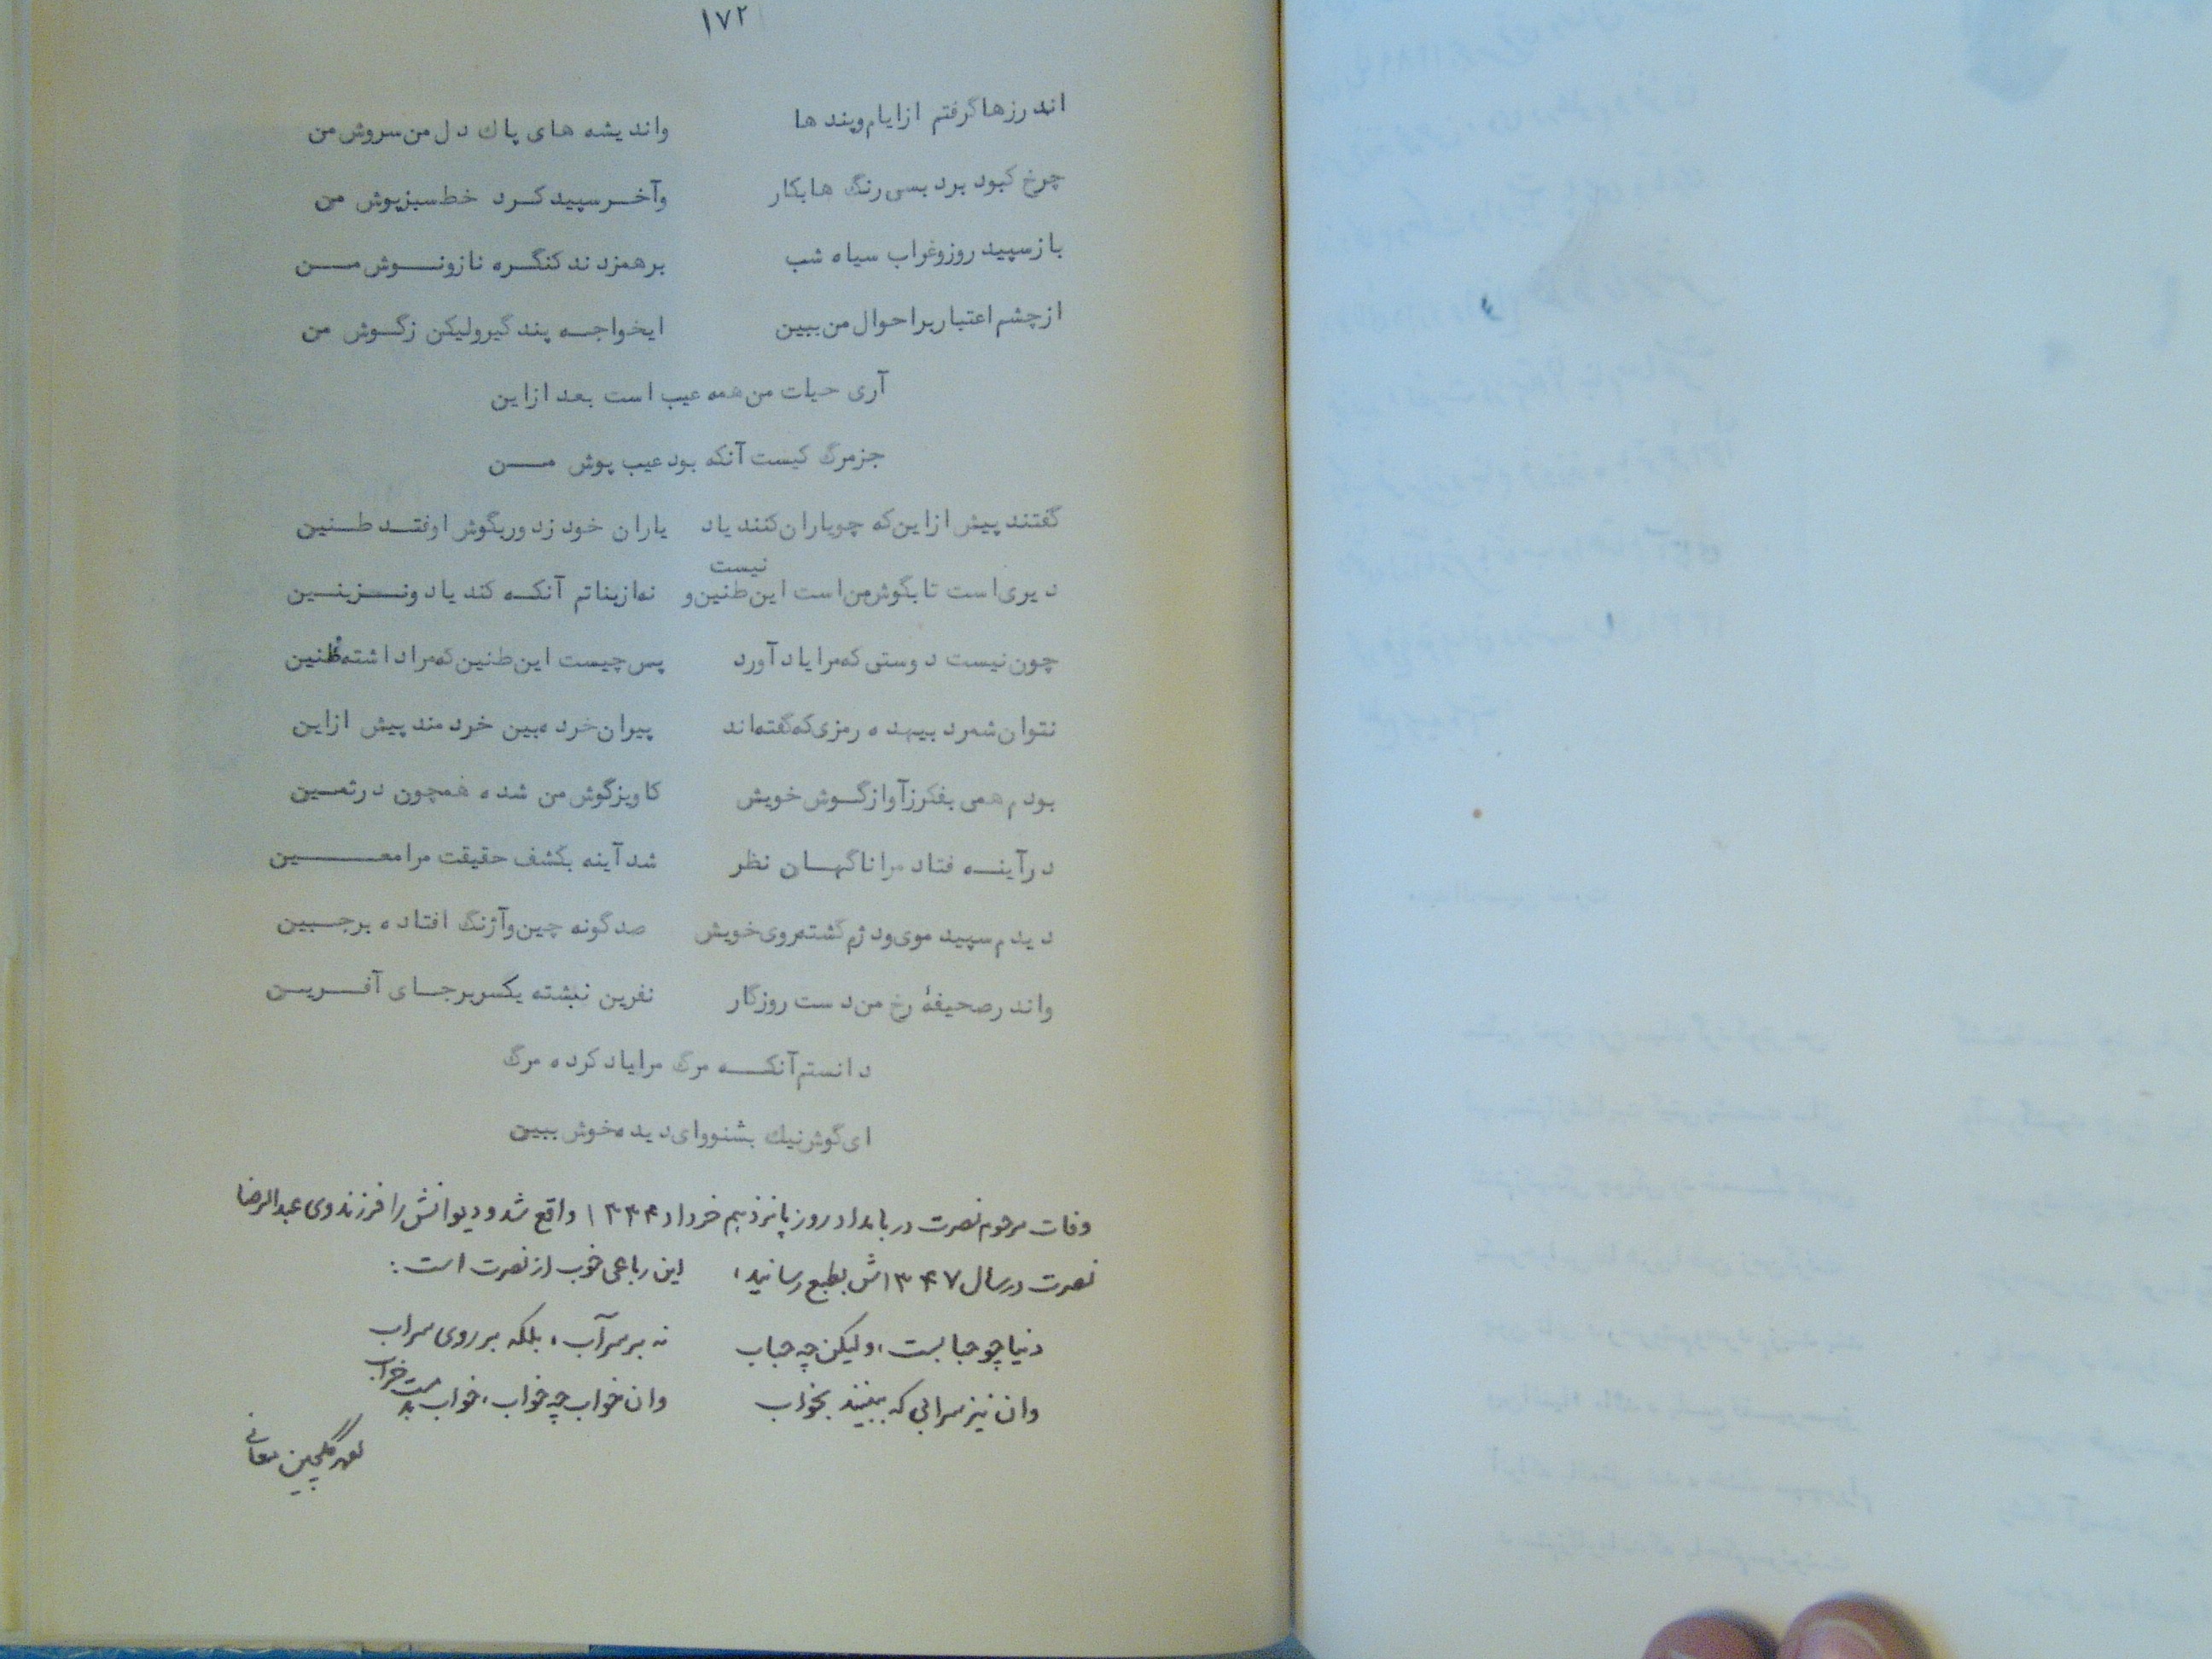 ۱۷۲
اندرزها گرفتم ازایام وپندها واندیشه های پاک دل من سروش من
چرخ کبود برد بسی رنگ هابکار وآخر سپید کرد خط سبزپوش من
بازسپید روزوغراب سیاه شب برهمزدند کنگره نازونوش من
ازچشم اعتباربراحوال من ببین ایخواجه پندگیرولیکن زگوش من
آری حیات من همه عیب است بعد ازاین
جزمرگ کیست آنکه بود عیب پوش من
گفتند پیش ازاین که چویاران کنند یاد یاران خود زدوربگوش اوفتد طنین
نیست
دیری است تابگوش من است این طنین و نه ازبناتم آنکه کند یاد ونزبنین
چون نیست دوستی که مرا یاد آورد پس چیست این طنین که مرا داشته ظنین
نتوان شمرد بیهده رمزی که گفته اند پیران خرده بین خردمند پیش ازاین
بودم همی بفکرزآوازگوش خویش کاویزگوش من شده همچون درثمین
درآینه فتاد مرا ناگهان نظر شد آینه بکشف حقیقت مرا معین
دیدم سپید موی ودژم گشته روی خویش صدگونه چین وآژنگ افتاده برجبین
واندرصحیفهٔ رخ من دست روزگار نفرین نبشته یکسربرجای آفرین
دانستم آنکه مرگ مرا یاد کرده مرگ
ای گوش نیک بشنووای دیده خوش ببین
وفات مرحوم نصرت در بامداد روز پانزدهم خرداد ۱۳۳۴ واقع شد و دیوانش را فرزند وی عبدالرضا
نصرت در سال ۱۳۴۷ ش بطبع رسانید، این رباعی خوب از نصرت است:
دنیا چو حبابست، ولیکن چه حباب نه بر سر آب، بلکه بر روی سراب
وان نیز سرابی که ببینند بخواب وان خواب چه خواب، خواب بد مست خراب
گلچین معانی